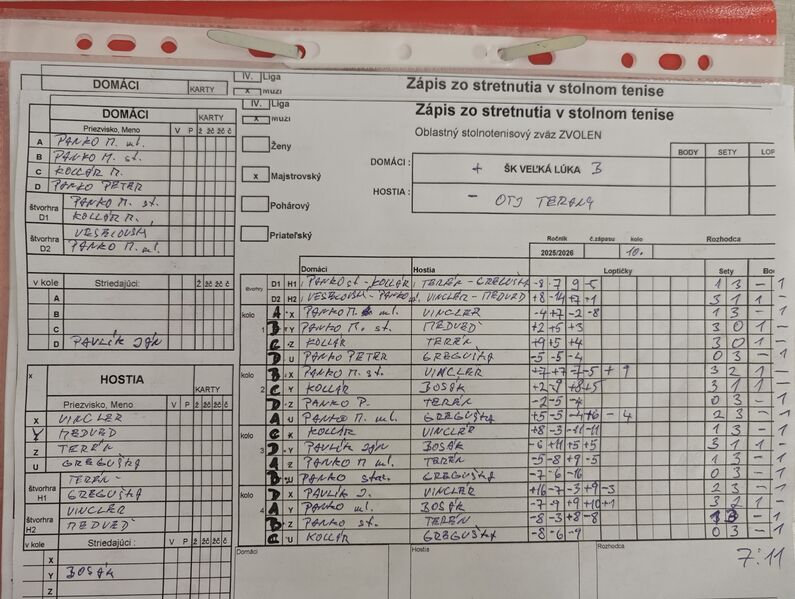 DOMÁCI KARTY IV. Liga Zápis zo stretnutia v stolnom tenise
x MUZI
DOMÁCI KARTY IV. Liga Zápis zo stretnutia v stolnom tenise
x Muži
Oblastný stolnotenisový zväz ZVOLEN
Priezvisko, Meno V P ž žč žč č
A PANKO M. ml.
B PANKO M. st.
C KOLLÁR M.
D PANKO PETER
štvorhra D1 PANKO M. st.
KOLLÁR M.
štvorhra D2 VESELOVSKÝ
PANKO M. ml.
Ženy
x Majstrovský
Pohárový
Priateľský
DOMÁCI : + ŠK VEĽKÁ LÚKA B
HOSTIA : - OTJ TERANY
BODY SETY LOP
Ročník č.zápasu kolo Rozhodca
2025/2026 10.
v kole Striedajúci: ž žč žč č
A
B
C
D PAVLÍK JÁN
x HOSTIA KARTY
Priezvisko, Meno V P ž žč žč č
X VINCLER
Y MEDVEĎ
Z TERÉN
U GREGUŠKA
štvorhra H1 TERÉN
GREGUŠKA
štvorhra H2 VINCLER
MEDVEĎ
v kole Striedajúci : ž žč žč č
X
Y BOSÁK
Z
Domáci Hostia Loptičky Sety Bo
štvorhry D1 H1 PANKO st - KOLLÁR TERÉN - GREGUŠKA -8 -7 9 -5 1 3 - 1
D2 H2 VESELOVSKÝ - PANKO ml. VINCLER - MEDVEĎ +8 -14 +7 +1 3 1 1 -
kolo 1 A - X PANKO M. ml. VINCLER -4 +7 -2 -8 1 3 - 1
B - Y PANKO M. st. MEDVEĎ +2 +5 +3 3 0 1 -
C - Z KOLLÁR TERÉN +9 +5 +4 3 0 1 -
D - U PANKO PETER GREGUŠKA -5 -5 -4 0 3 - 1
kolo 2 B - X PANKO M. st. VINCLER +7 +7 -7 -5 +9 3 2 1 -
C - Y KOLLÁR BOSÁK +2 -9 +8 +5 3 1 1 -
D - Z PANKO P. TERÉN -2 -5 -4 0 3 - 1
A - U PANKO M. ml. GREGUŠKA +5 -5 -4 +6 -4 2 3 - 1
kolo 3 C - X KOLLÁR VINCLER +8 -3 -11 -11 1 3 - 1
D - Y PAVLÍK JÁN BOSÁK -6 +11 +5 +5 3 1 1 -
A - Z PANKO M ml. TERÉN -5 -8 +9 -5 1 3 - 1
B - U PANKO star. GREGUŠKA -7 -6 -16 0 3 - 1
kolo 4 D X PAVLÍK J. VINCLER +16 -7 -3 +9 -3 2 3 - 1
A - Y PANKO ml. BOSÁK -7 -9 +9 +10 +1 3 2 1 -
B - Z PANKO st. TERÉN -8 -3 +8 -8 1 3 - 1
C - U KOLLÁR GREGUŠKA -8 -6 -9 0 3 - 1
Domáci Hostia Rozhodca
7:11